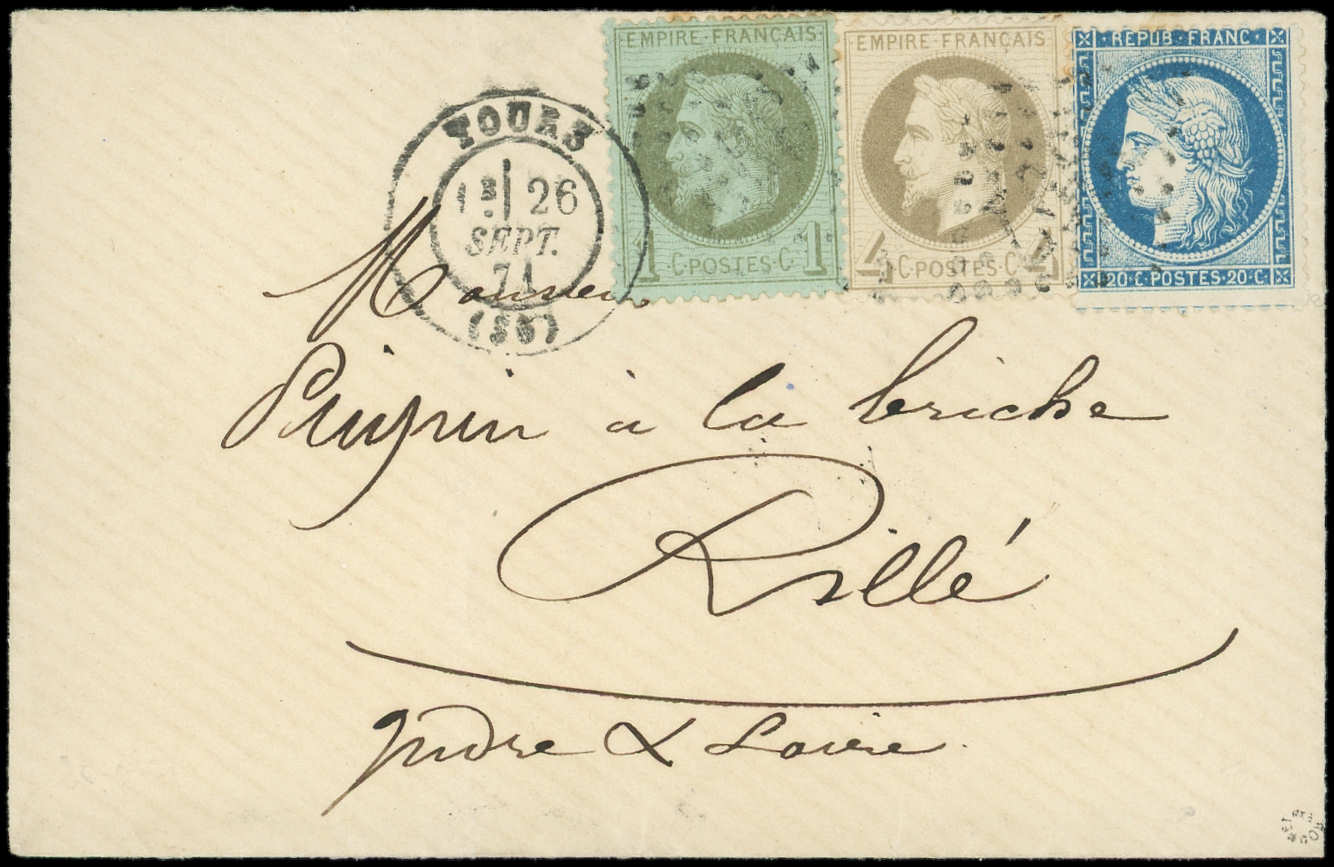 EMPIRE FRANÇAIS
1 C·POSTES·C· 1
EMPIRE·FRANÇAIS
4 C·POSTES·C· 4
REPUB·FRANC·
20·C·POSTES·20·C·
TOURS
26
SEPT.
71
Monsieur
à la briche
Rillé
Indre & Loire